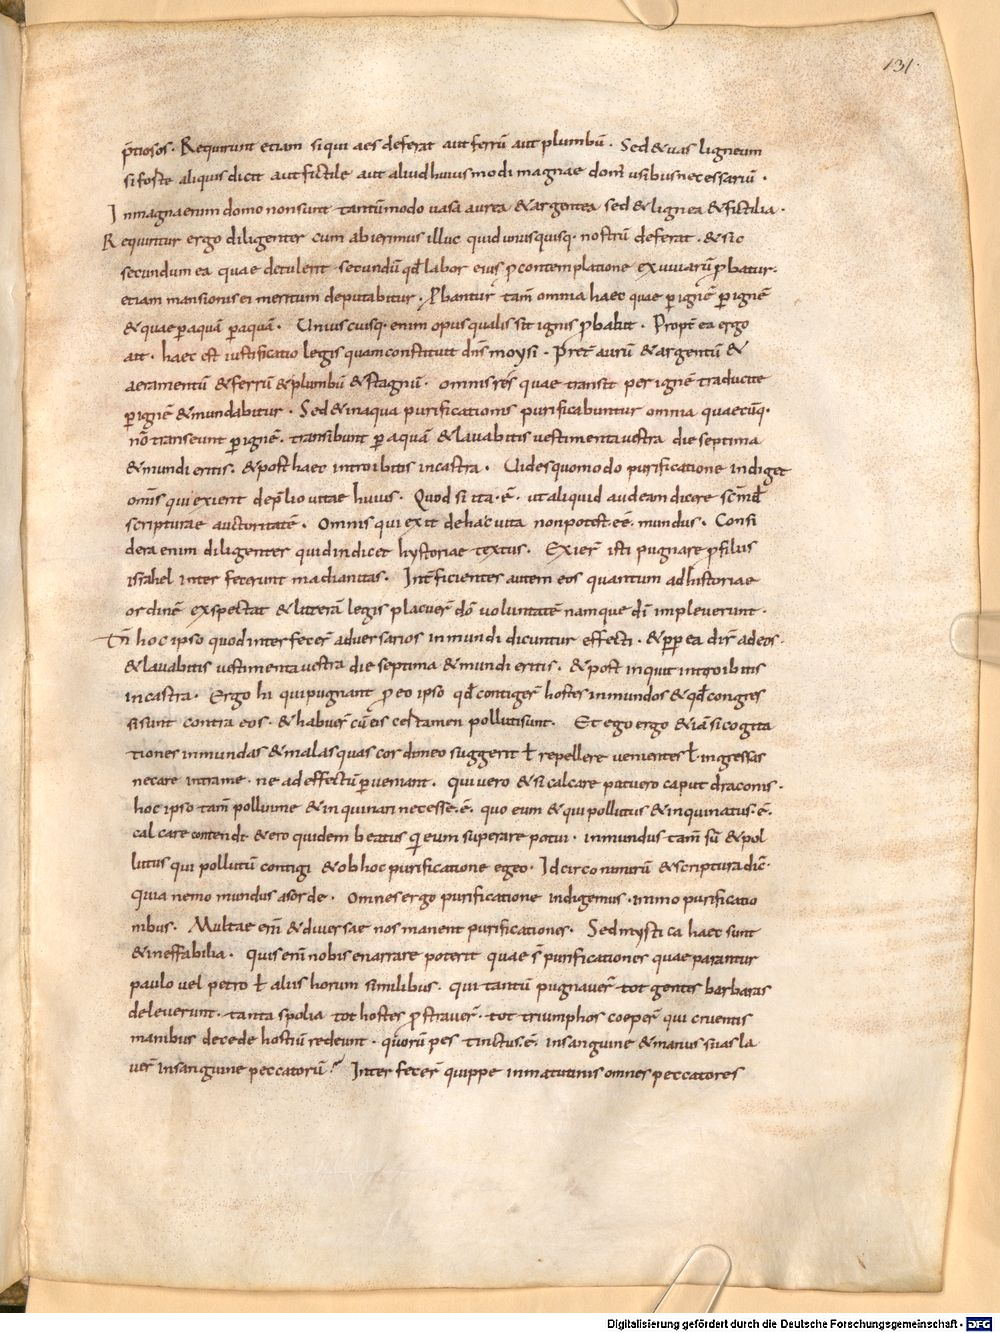 131.
p̄tiosos. Requirunt etiam si qui aes deferat aut ferrū aut plumbū. Sed & uas ligneum
si forte aliquis dicit aut fictile aut aliud huiusmodi magnae domꝰ usibus necessariū.
In magna enim domo non sunt tantūmodo uasa aurea & argentea sed & lignea & fictilia.
Requiritur ergo diligenter cum abierimus illuc quid unusquisq. nostrū deferat. & sic
secundum ea quae detulerit secundū qđ labor eius ꝓ contemplatione exuuiarū ꝓbatur.
etiam mansionis ei meritum deputabitur. Ꝓbantur tam̄ omnia haec quae ꝑ ignē ꝑ ignē
& quae ꝑ aquā ꝑ aquā. Uniuscuiusq. enim opus qualis sit ignis ꝓbabit. Propt̄ ea ergo
ait. haec est iustificatio legis quam constituit dn̄s moysi. Pret̄ aurū & argentū &
aeramentū & ferrū & plumbū & stagnū. omnis res quae transit per ignē traducite
ꝑ ignē & mundabitur. Sed & in aqua purificationis purificabuntur omnia quaecūq.
nō transeunt ꝑ ignē. transibunt ꝑ aquā & lauabitis uestimenta uestra die septima
& mundi eritis. & post haec introibitis in castra. Uides quomodo purificatione indiget
om̄is qui exierit de p̄lio uitae huius. Quod si ita .ē. ut aliquid audeam dicere scd̄m
scripturae auctoritatē. Omnis qui exit de hac uita non potest .eē. mundus. Consi
dera enim diligenter quid indicet hystoriae textus. Exier̄ isti pugnare ꝓ filiis
israhel interfecerunt madianitas. Int̄ficientes autem eos quantum ad historiae
ordinē exspectat & litterā legis placuer̄ dō uoluntatē namque dī impleuerunt.
Tn̄ hoc ipso quod interfecer̄ aduersarios inmundi dicuntur effecti. & ꝓp ea dir̄ ad eos.
& lauabitis uestimenta uestra die septima & mundi eritis. & post inquit introibitis
in castra. Ergo hi qui pugnant ꝓ eo ipso qđ contiger̄ hostes inmundos & qđ congres
si sunt contra eos. & habuer̄ cū eis certamen polluti sunt. Et ego ergo & iā si cogita
tiones inmundas & malas quas cor dō meo suggerit ł repellere uenientes ł ingressas
necare intra me. ne ad effectū ꝑueniant. qui uero & si calcare potuero caput draconis.
hoc ipso tam̄ pollui me & inquinari necesse .ē. quo eum & qui pollutus & inquinatus .ē.
calcare contendi. & ero quidem beatus qi eum superare potui. inmundus tam̄ sū & pol
lutus qui pollutū contigi & ob hoc purificatione egeo. Idcirco nimirū & scriptura dic̄.
quia nemo mundus a sorde. Omnes ergo purificatione indigemus. immo purificatio
nibus. Multae em̄ & diuersae nos manent purificationes. Sed mystica haec sunt
& ineffabilia. Quis enī nobis enarrare poterit quae s̄ purificationes quae parantur
paulo uel petro ł aliis horum similibus. qui tantū pugnauer̄ tot gentes barbaras
deleuerunt. tanta spolia tot hostes ꝓstrauer̄. tot triumphos coeper̄ qui cruentis
manibus de cede hostiū redeunt. quorū pes tinctus .ē. in sanguine & manus suas la
uer̄ in sanguine peccatorū? Interfecer̄ quippe in matutinis omnes peccatores
Digitalisierung gefördert durch die Deutsche Forschungsgemeinschaft - DFG